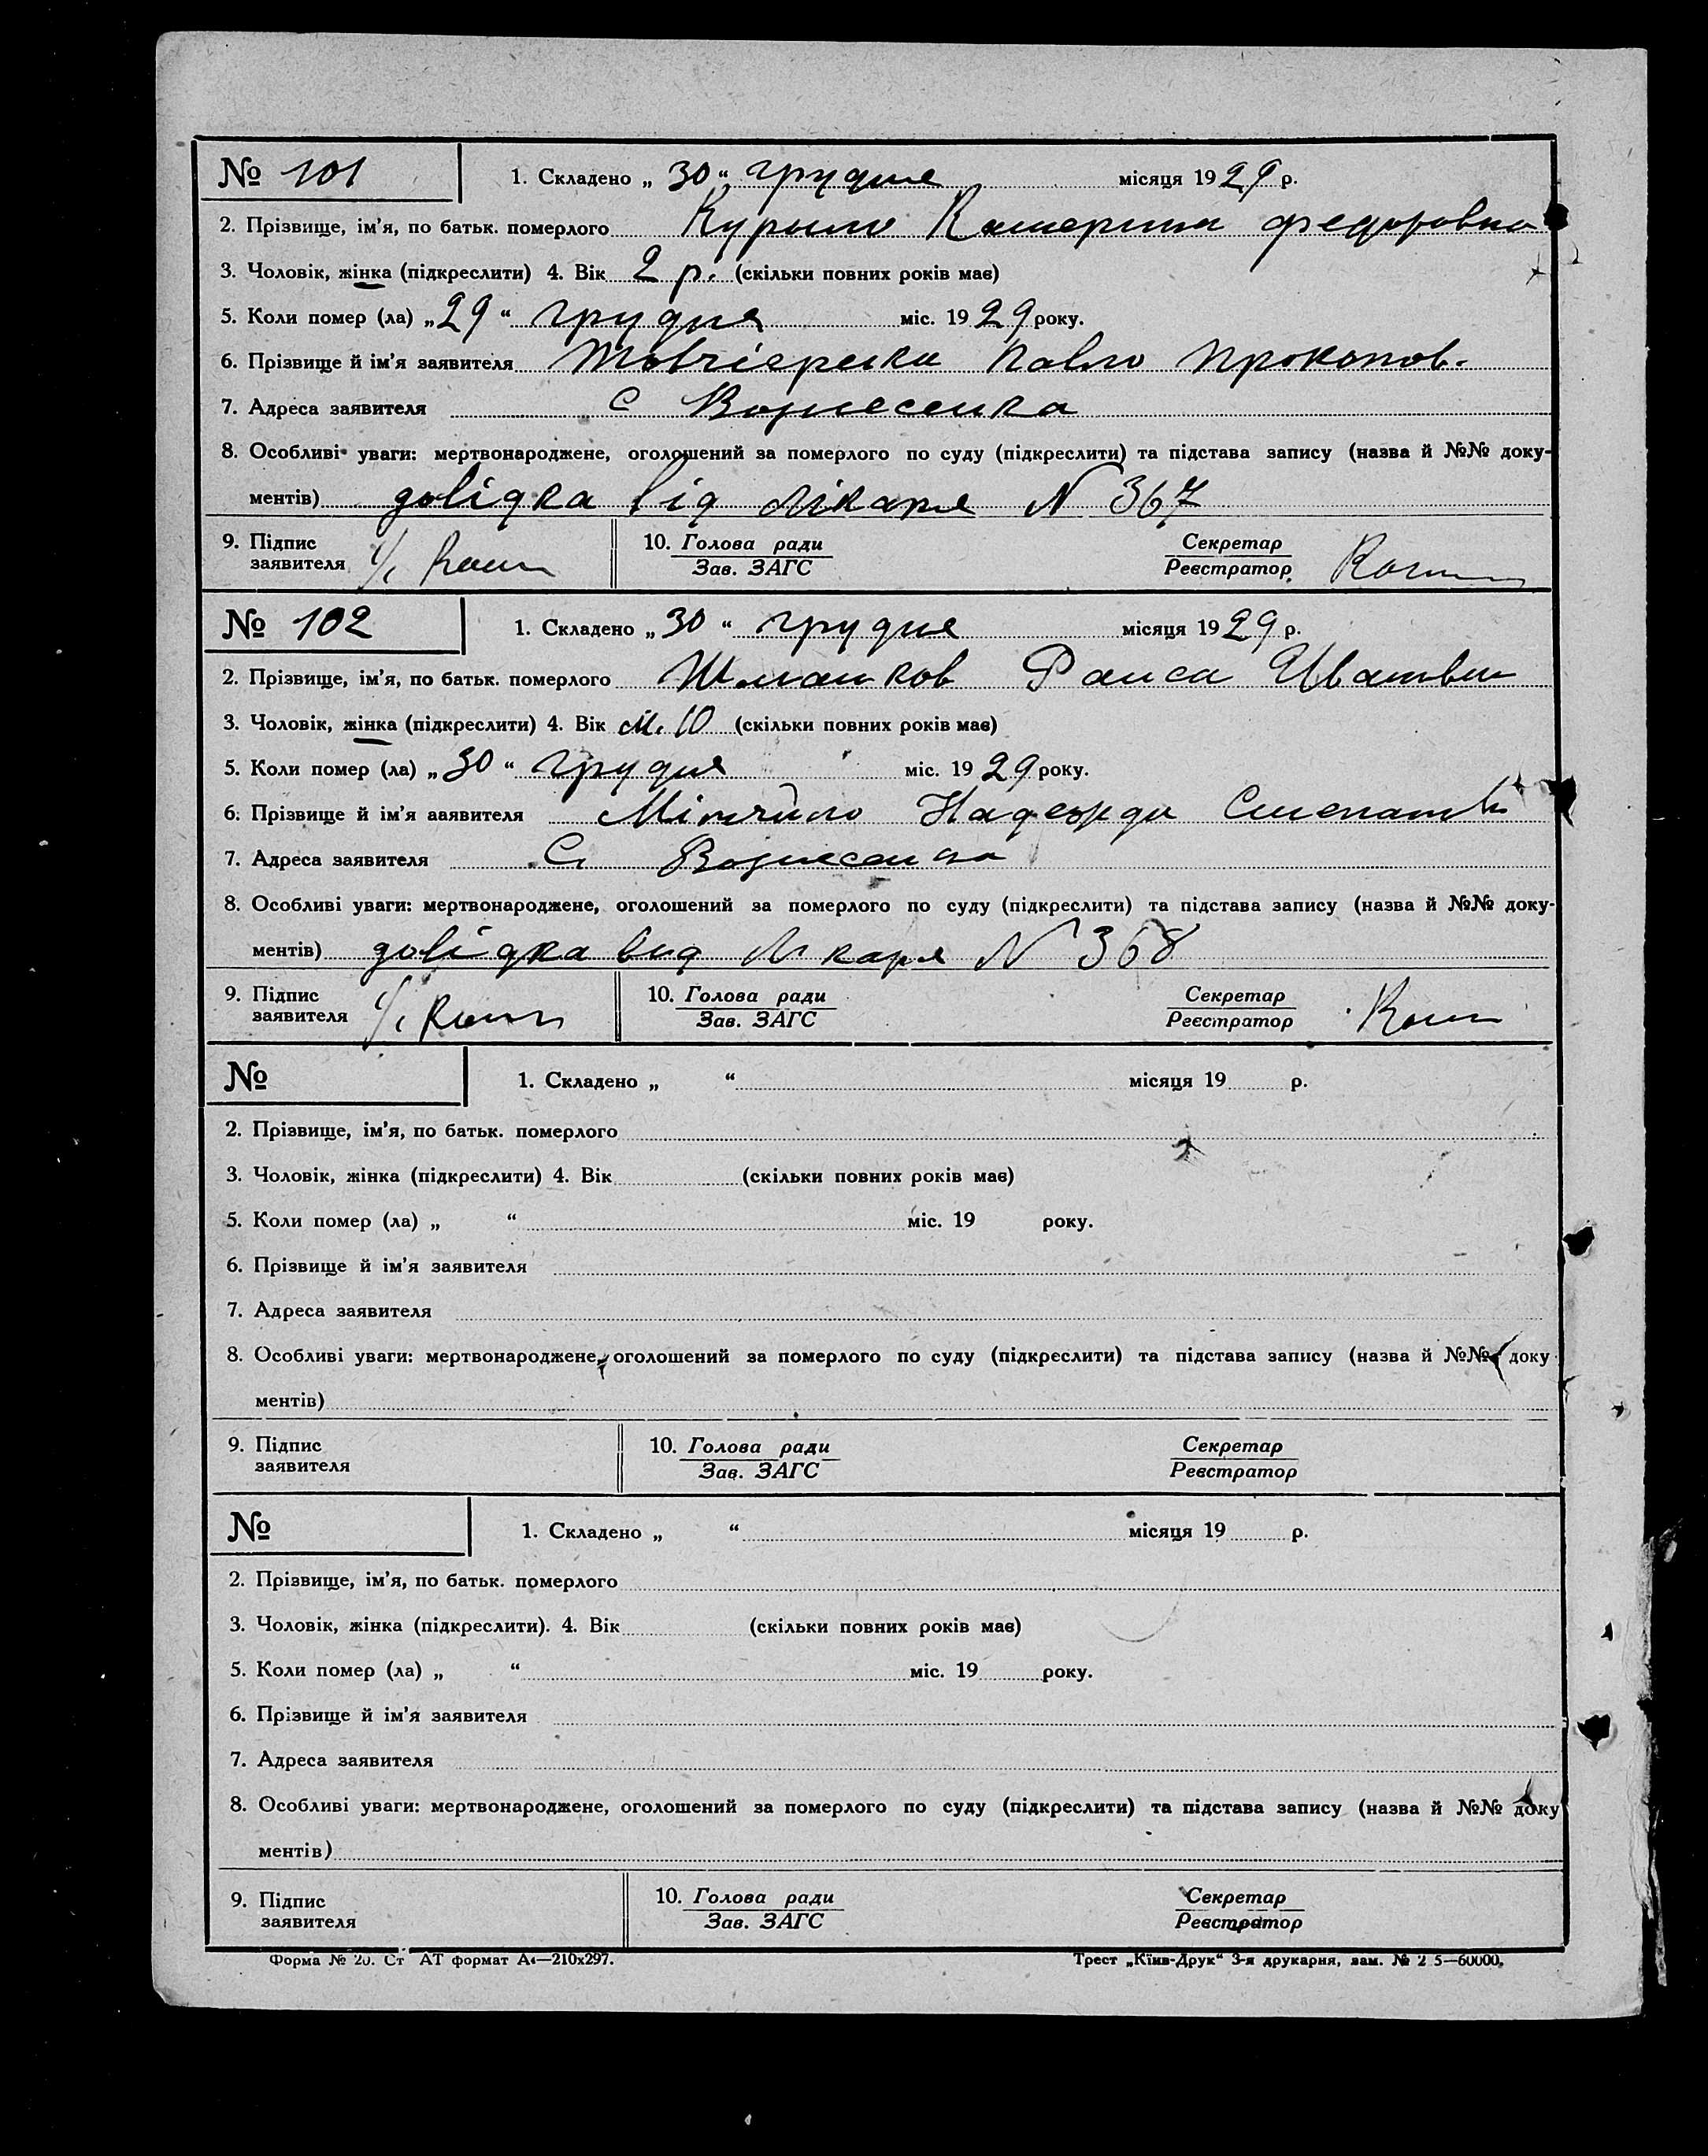 № 101 1. Складено „ 30 “ грудня місяця 1929 р.
2. Прізвище, ім'я, по батьк. померлого Курило Катерина Федоровна
3. Чоловік, жінка (підкреслити) 4. Вік 2 р. (скільки повних років має)
5. Коли помер (ла) „ 29 “ грудня міс. 1929 року.
6. Прізвище й ім'я заявителя Павло Прокопов.
7. Адреса заявителя с Вознесенка
8. Особливі уваги: мертвонароджене, оголошений за померлого по суду (підкреслити) та підстава запису (назва й №№ доку-
ментів) довідка від лікаря N 367
9. Підпис 10. Голова ради Секретар
заявителя Зав. ЗАГС Реєстратор
№ 102 1. Складено „ 30 “ грудня місяця 1929 р.
2. Прізвище, ім'я, по батьк. померлого Раиса
3. Чоловік, жінка (підкреслити) 4. Вік м. 10 (скільки повних років має)
5. Коли помер (ла) „ 30 “ грудня міс. 1929 року.
6. Прізвище й ім'я заявителя Надежда
7. Адреса заявителя С. Вознесенка
8. Особливі уваги: мертвонароджене, оголошений за померлого по суду (підкреслити) та підстава запису (назва й №№ доку-
ментів) довідка вид лікаря N 368
9. Підпис 10. Голова ради Секретар
заявителя Зав. ЗАГС Реєстратор
№ 1. Складено „ “ місяця 19 р.
2. Прізвище, ім'я, по батьк. померлого
3. Чоловік, жінка (підкреслити) 4. Вік (скільки повних років має)
5. Коли помер (ла) „ “ міс. 19 року.
6. Прізвище й ім'я заявителя
7. Адреса заявителя
8. Особливі уваги: мертвонароджене, оголошений за померлого по суду (підкреслити) та підстава запису (назва й №№ доку
ментів)
9. Підпис 10. Голова ради Секретар
заявителя Зав. ЗАГС Реєстратор
№ 1. Складено „ “ місяця 19 р.
2. Прізвище, ім'я, по батьк. померлого
3. Чоловік, жінка (підкреслити). 4. Вік (скільки повних років має)
5. Коли помер (ла) „ “ міс. 19 року.
6. Прізвище й ім'я заявителя
7. Адреса заявителя
8. Особливі уваги: мертвонароджене, оголошений за померлого по суду (підкреслити) та підстава запису (назва й №№ доку
ментів)
9. Підпис 10. Голова ради Секретар
заявителя Зав. ЗАГС Реєстратор
Форма № 20. Ст АТ формат А4—210x297. Трест „Київ-Друк“ 3-я друкарня, зам. №